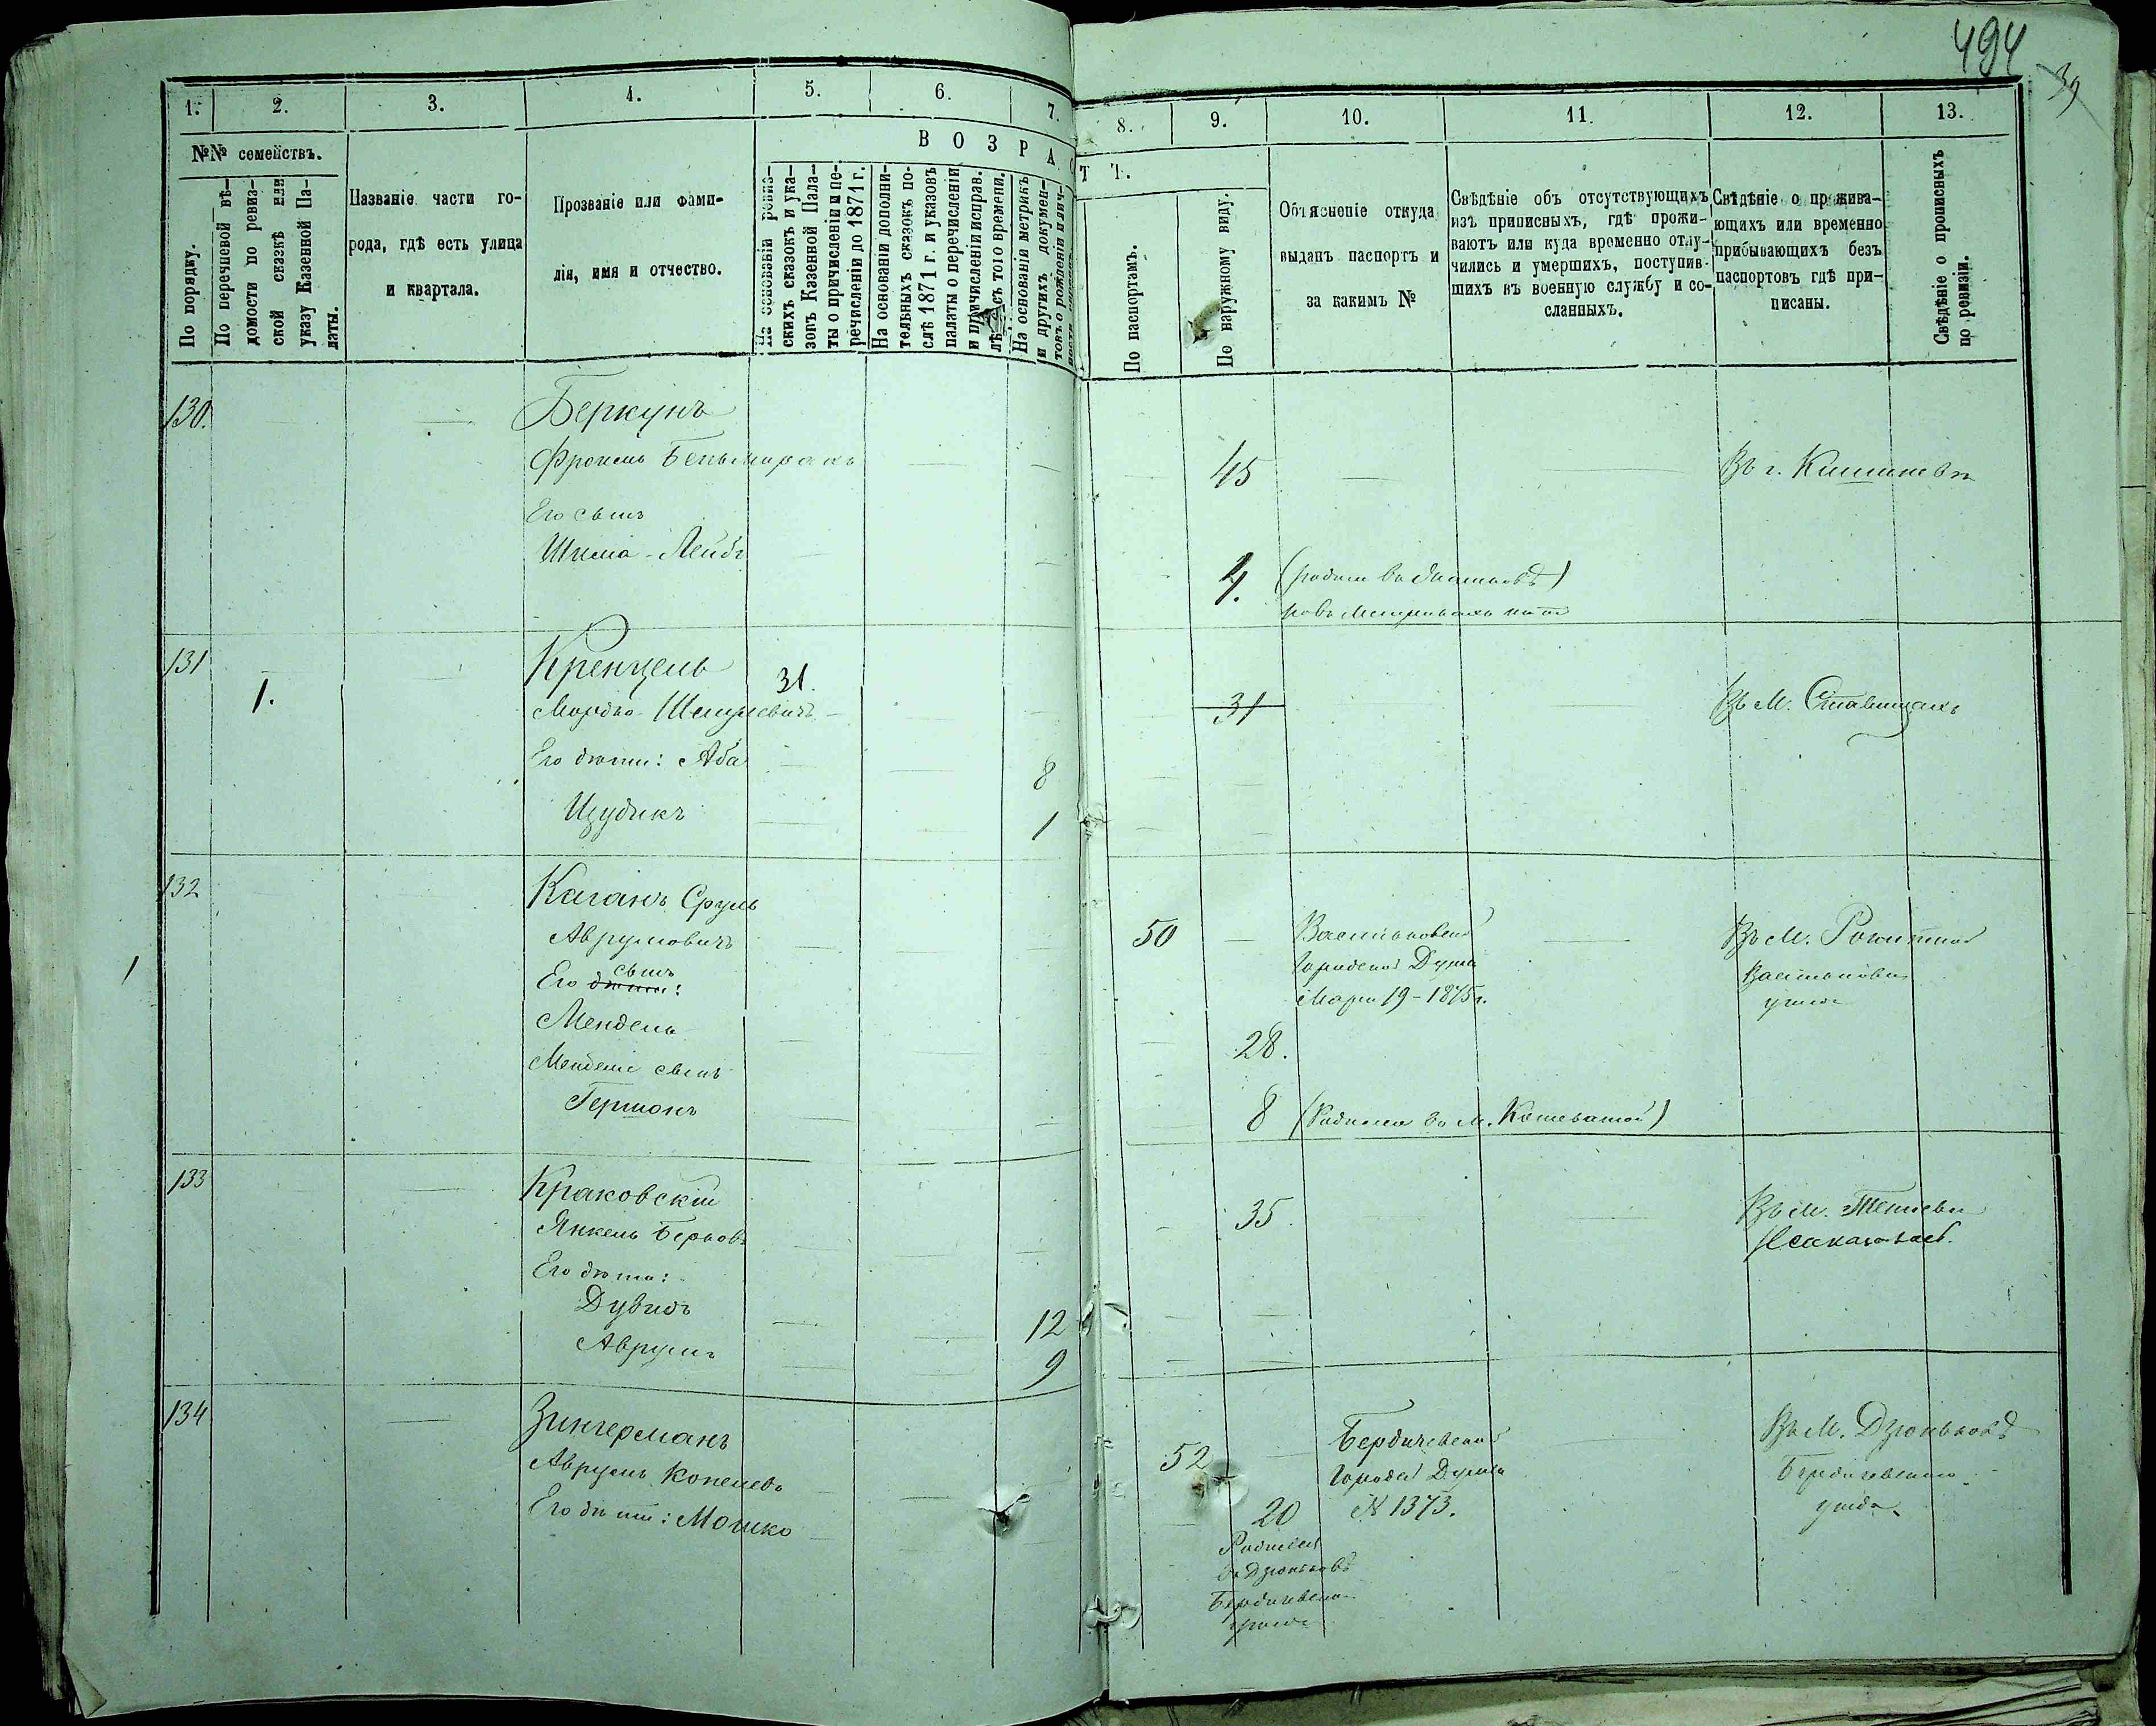 494
39
1. 2. 3. 4. 5. 6. 7. 8. 9. 10. 11. 12. 13.
№№ семействъ.
По порядку.
По перечневой вѣ-
домости по ревиз-
ской сказкѣ или
указу Казенной Па-
латы.
Названіе части го-
рода, гдѣ есть улица
и квартала.
Прозваніе или фами-
лія, имя и отчество.
ВОЗРАСТ Т.
На основаніи ревиз-
скихъ сказокъ и ука-
зовъ Казенной Пала-
ты о причисленіи и пе-
речисленіи до 1871 г.
На основаніи дополни-
тельныхъ сказокъ по-
слѣ 1871 г. и указовъ
палаты о перечисленіи
и причисленіи исправ.
лѣ съ того времени.
На основаніи метрикъ
и другихъ докумен-
товъ о рожденіи и лич-
По паспортамъ.
По наружному виду.
Объясненіе откуда
выданъ паспортъ и
за какимъ №
Свѣдѣніе объ отсутствующихъ
изъ приписныхъ, гдѣ прожи-
ваютъ или куда временно отлу-
чились и умершихъ, поступив-
шихъ въ военную службу и со-
сланныхъ.
Свѣдѣніе о прожива-
ющихъ или временно
прибывающихъ безъ
паспортовъ гдѣ при-
писаны.
Свѣдѣніе о прописныхъ
по ревизіи.
130. Беркунъ
Фроимъ 45 Въ г. Кишиневѣ
Его сынъ
Шлема-Лейбъ 4. (родился въ
131 Кренцель 31.
1. Мордко 31 Въ М. Ставищахъ
Его дѣти: Аба 8
Ицудикъ 1
132 Каганъ Сруль
Аврумовичъ 50 Васильковской Въ М. Рокитной
Городской Думы Васильковск.
Его дѣти: сынъ Марта 19-1875г. уѣзда
Мендель 28.
Менделя сынъ
Гершонъ 8 (Родился въ м. Кошеватой)
133 Краковскій 35 Въ М. Тетіевѣ
Янкель Берков.
Его дѣти:
Дувидъ 12
Аврумъ 9
134 Зингерманъ Бердичевской Въ М. Дзюньковѣ
Аврумъ Копелев. 52 Городск. Думы Бердичевскаго
Его дѣти: Мошко 20 № 1373. уѣзда
Родился
въ Дзюньковѣ
Бердичевскаго
уѣзда